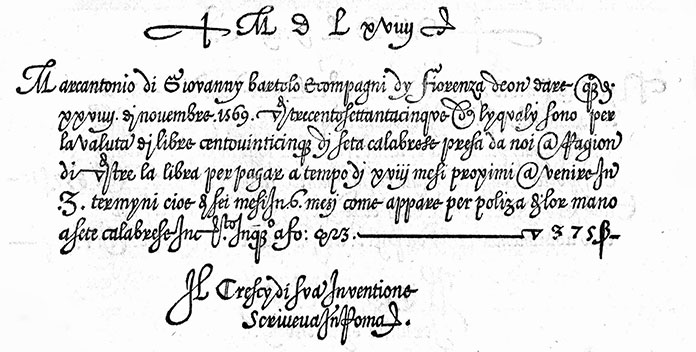 M D L xviiij
Marcantonio di Giovanny bartolo & compagni dy Fiorenza deon dare
xxviiij. di novembre. 1569. trecentosettantacinque lyqualy sono per
la valuta di libre centouinticinqꝫ di seta calabrese presa da noi @ Ragion
di tre la libra per pagar a tempo di xviij mesi proximi @ venire In
.3. termyni cioe di sei mesi In 6. mesi come appare per poliza di lor mano
a sete calabrese a fo: 423. ▽ 375
Il Crescy di sua Inventione
Scriveva In Roma.